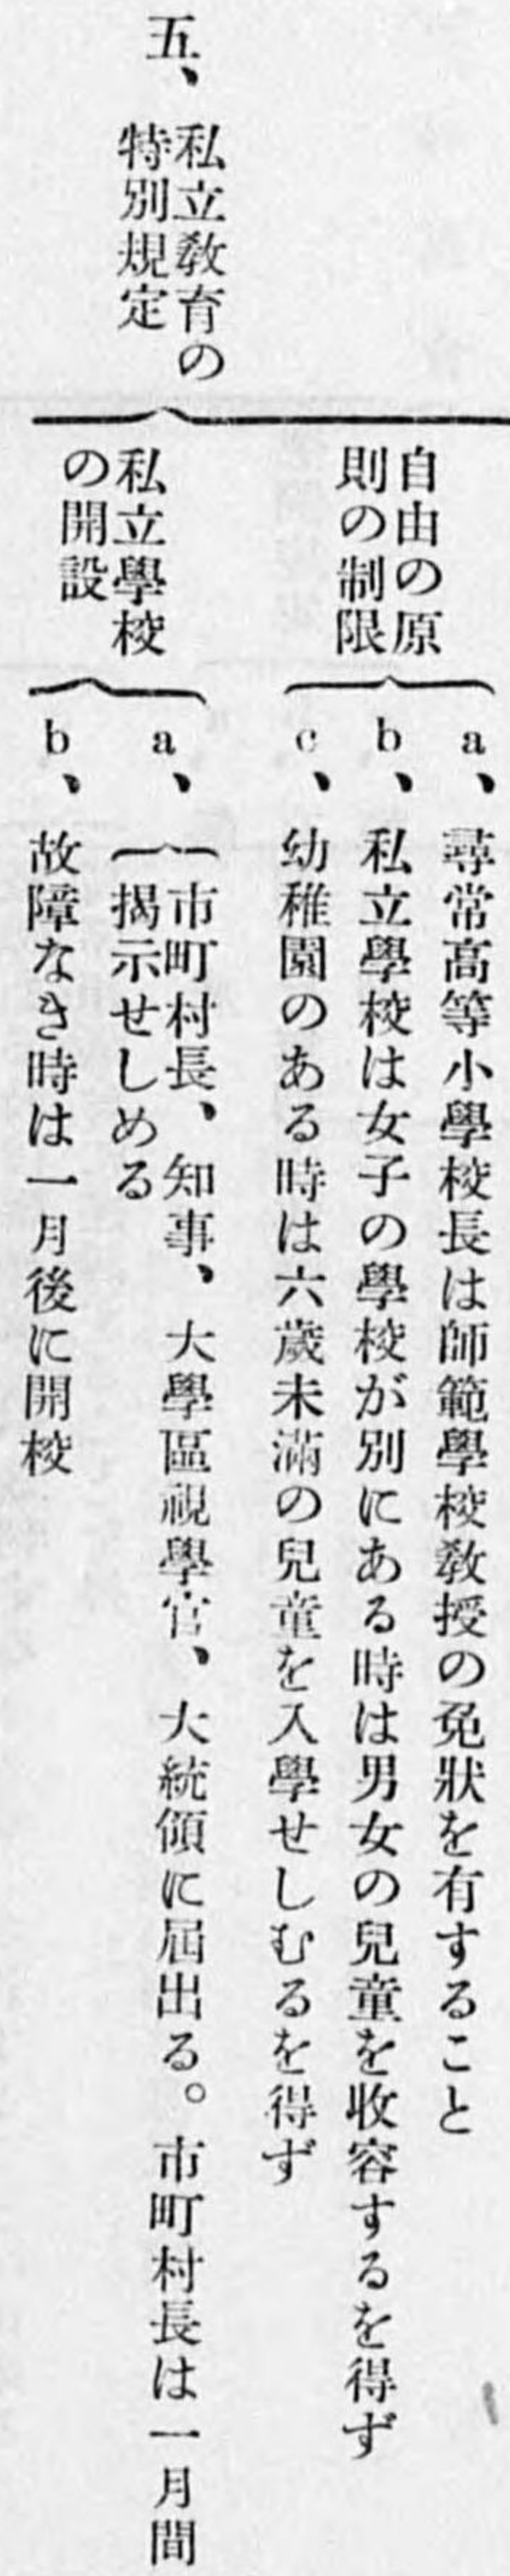 五、
私立教育の
特別規定
自由の原
則の制限
a、尋常高等小學校長は師範學校教授の免狀を有すること
b、私立學校は女子の學校が別にある時は男女の兒童を收容するを得ず
c、幼稚園のある時は六歲未滿の兒童を入學せしむるを得ず
私立學校
の開設
a、市町村長、知事、大學區視學官、大統領に屆出る。市町村長は一月間
揭示せしめる
b、故障なき時は一月後に開校